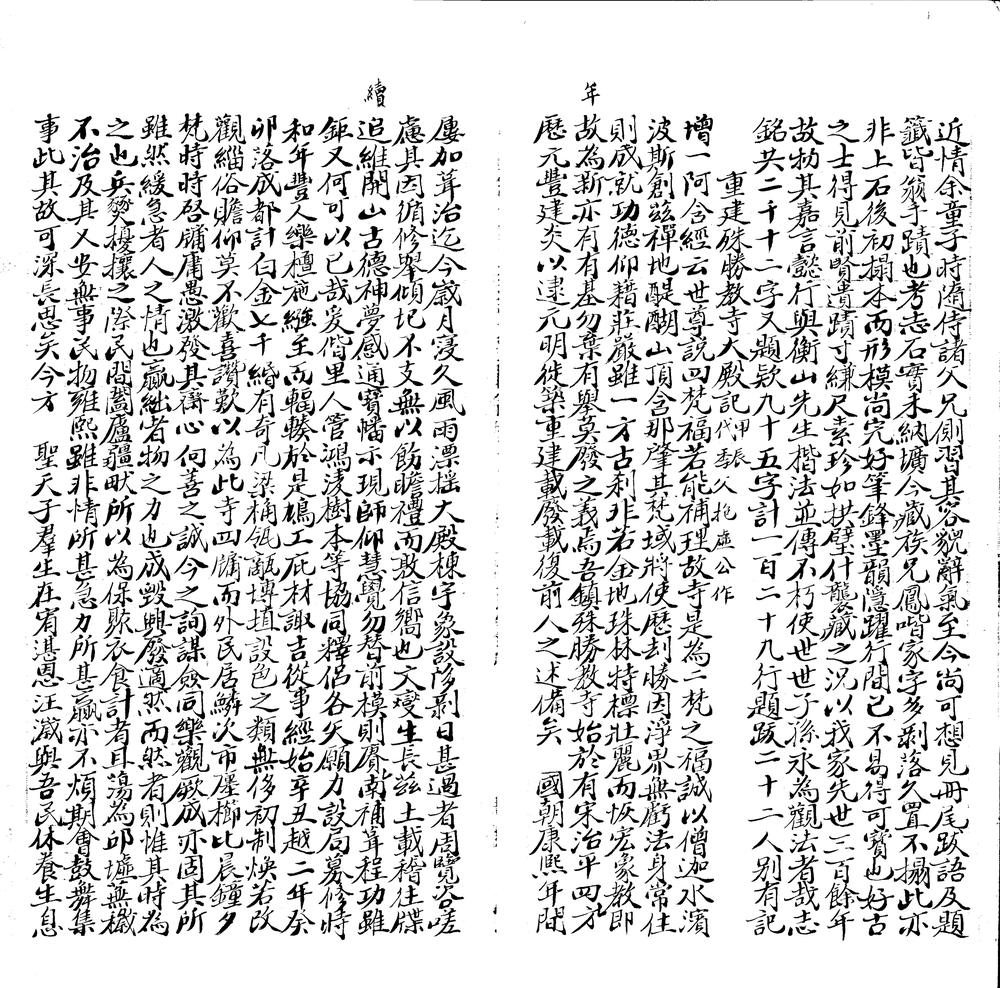 年
近情余童子時隨侍諸父兄側習其容貌辭氣至今尚可想見冊尾跋語及題
籤皆翁手蹟也考志石實未納壙今藏族兄鳳喈家字多剥落久置不搨此亦
非上石後初搨本而形模尚完好筆鋒墨韻隱躍行間已不易得可寶也好古
之士得見前賢遺蹟寸縑尺素珍如拱璧什襲藏之況以我家先世三百餘年
故物其嘉言懿行與衡山先生楷法並傳不朽使世世子孫永為觀法者哉志
銘共二千十二字又題款九十五字計一百二十九行題跋二十二人别有記
重建殊勝教寺大殿記甲辰代李久抱虛公作
增一阿含經云世尊説四梵福若能補理故寺是為二梵之福誠以僧迦水濱
波斯創兹禪地醍醐山頂含那肇其梵域將使歷刦勝因淨界無虧法身常住
則成就功德仰藉莊嚴雖一方古刹非若金地珠林特標壯麗而恢宏象教即
故為新亦有有基勿棄有舉莫廢之義焉吾鎮殊勝教寺始於有宋治平四年
歷元豐建炎以逮元明徙築重建載廢載復前人之述備矣 國朝康熙年間
續
屢加葺治迄今歲月寖久風雨漂摇大殿棟宇象設侈剥日甚過者周覽咨嗟
慮其因循修舉傾圮不支無以飭瞻禮而敦信嚮也文燮生長兹土載稽往牒
追維開山古德神夢感通寶幡示現師仰慧覺勿替前模則賡補葺程功雖
鉅又何可以已哉爰偕里人管鴻淩樹本等協同釋侣各矢願力設局募修時
和年豐人樂檀施繈至而輻輳於是鳩工庀材諏吉從事經始辛丑越二年癸
卯落成都計白金七千緡有奇凡梁桷瓴甋塼埴設色之類無侈初制煥若改
觀緇俗瞻仰莫不歡喜讚歎以為此寺四牖而外民居鱗次市廛櫛比晨鐘夕
梵時時啓牖庸愚激發其齋心向善之誠今之詢謀僉同樂觀厥成亦固其所
雖然緩急者人之情也贏絀者物之力也成毀興廢適然而然者則惟其時為
之也兵燹擾攘之際民間闔廬疆畎所以為保聚衣食計者且蕩為邱墟無懺
不治及其乂安無事民物雍熙雖非情所甚急力所甚贏亦不煩期會鼓舞集
事此其故可深長思矣今方 聖天子羣生在宥湛恩汪濊與吾民休養生息